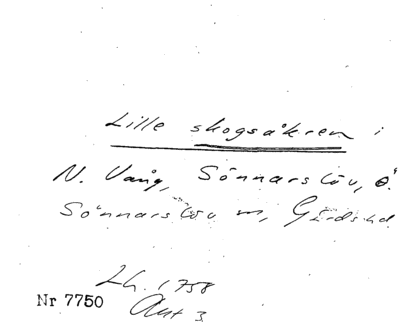 Lille skogsåkren i
N. Vång, Sönnarslöv, Ö.
Sönnarslöv sn, Gärds hd.
Lh. 1758
Akt 3
Nr 7750